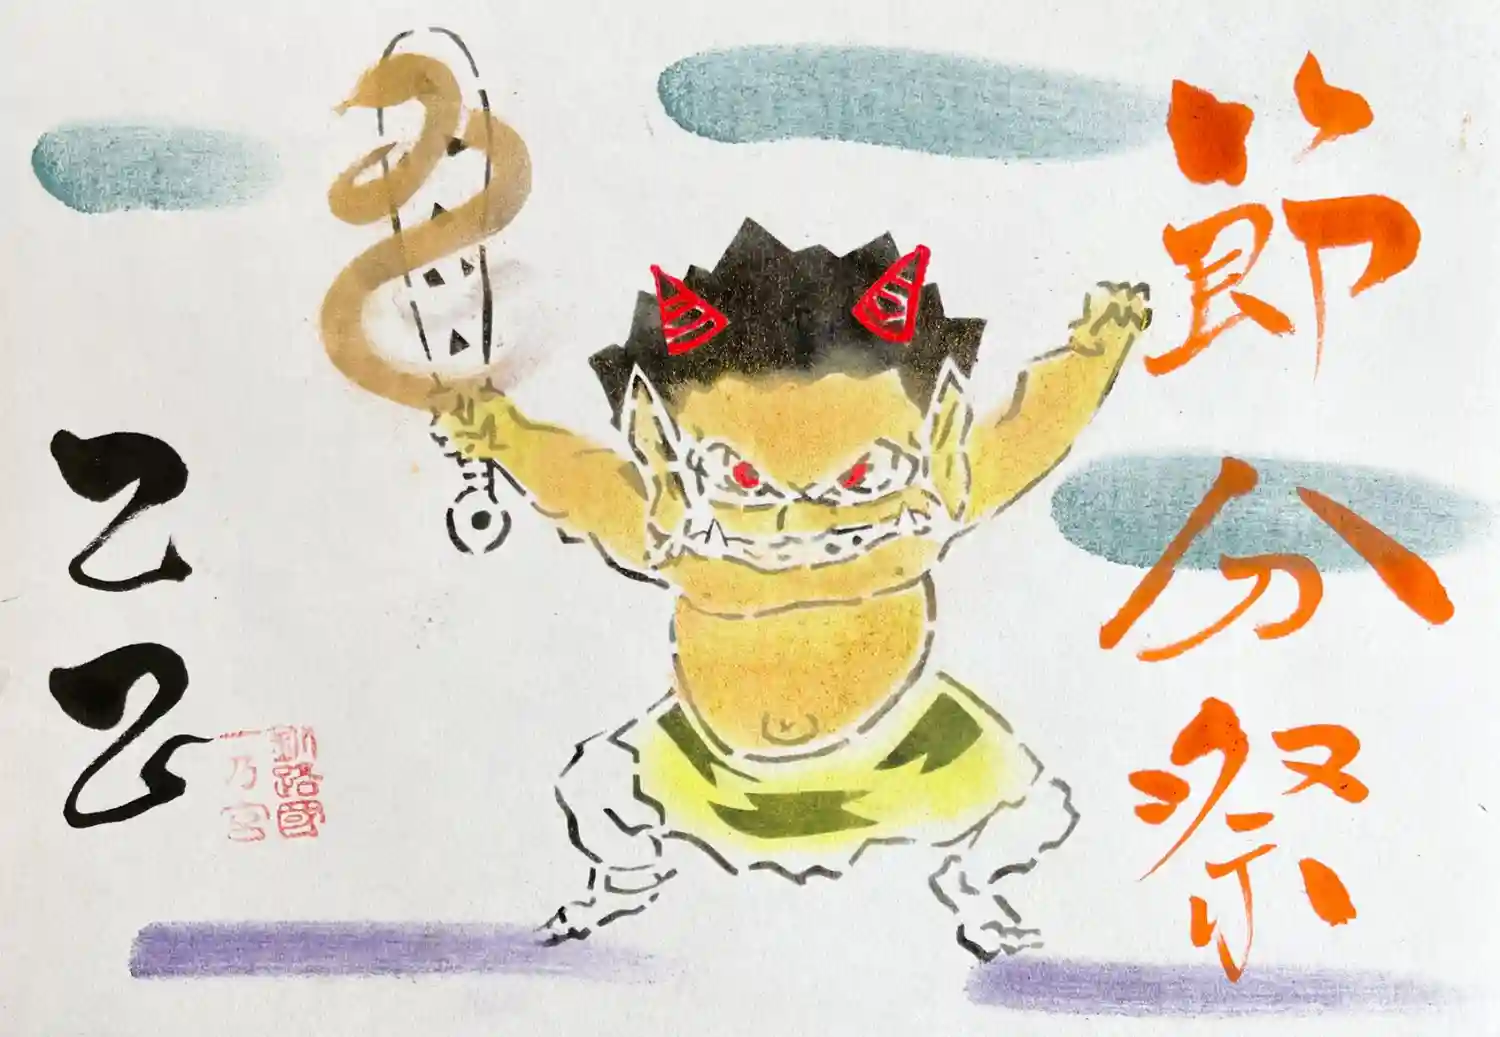 節分祭
釧路國
一乃宮
乙巳